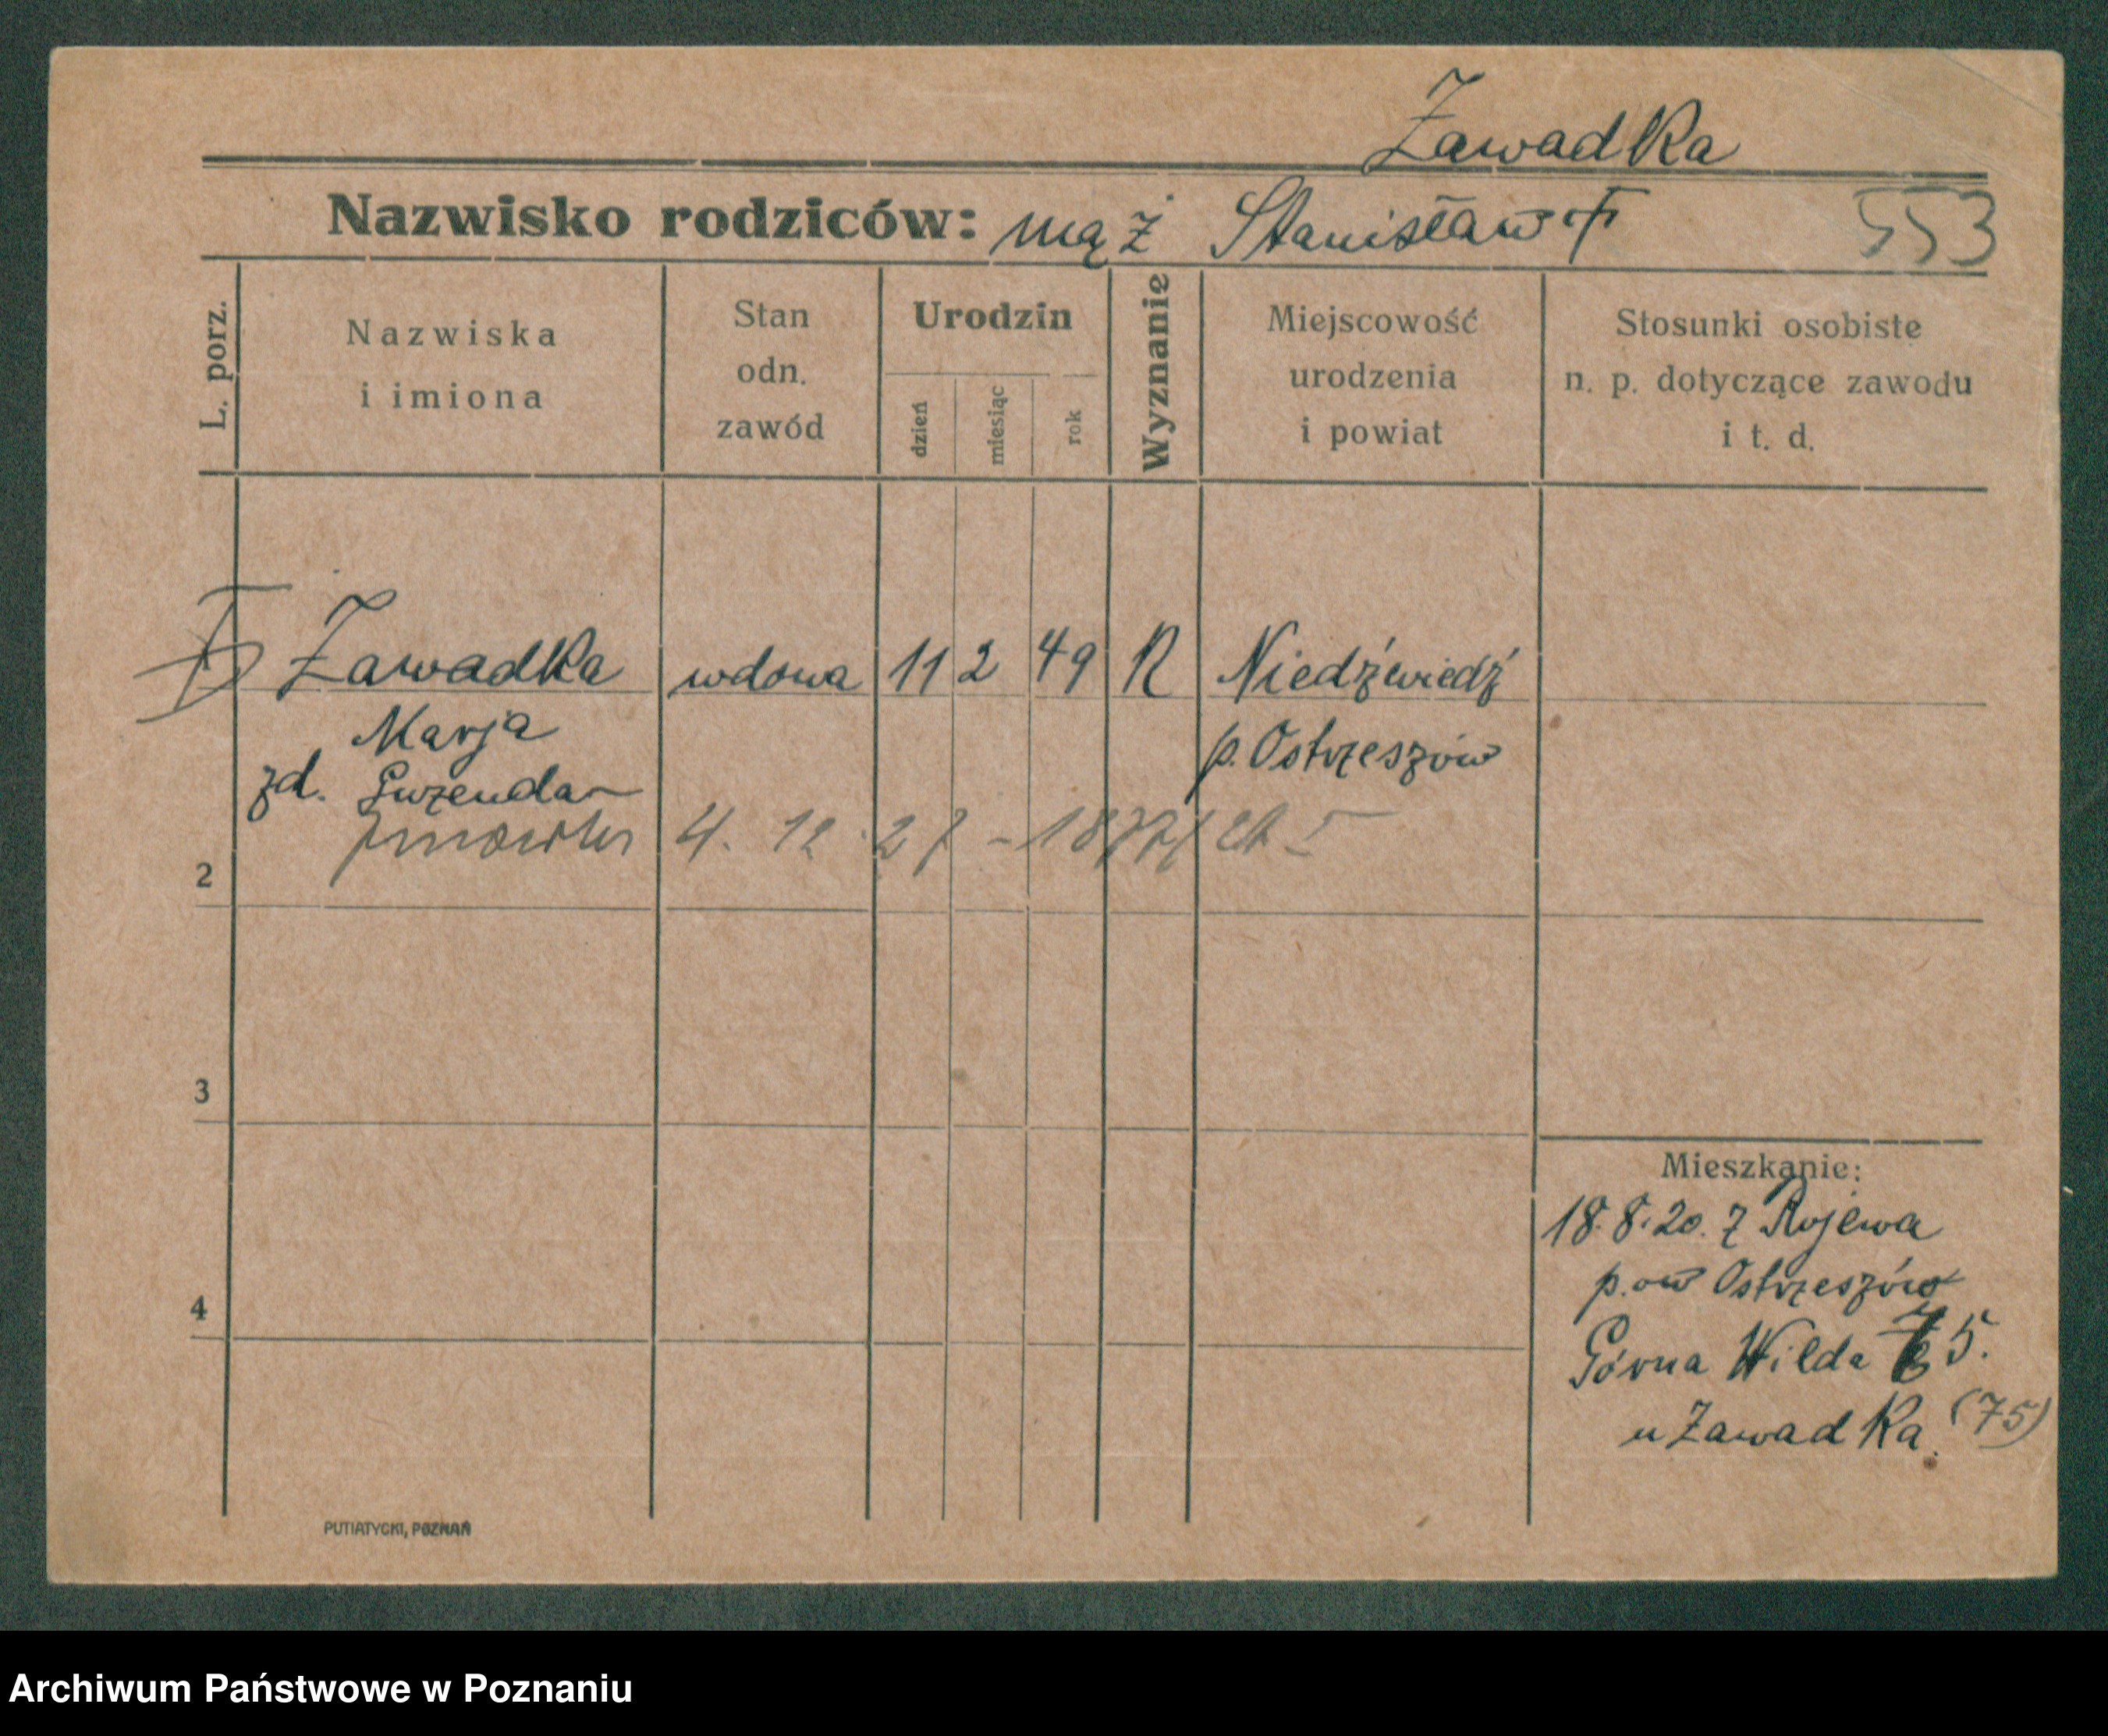 Zawadka
Nazwisko rodziców: mąż Stanisław †
553
L. porz.
Nazwiska
i imiona
Stan
odn.
zawód
Urodzin
dzień
miesiąc
rok
Wyznanie
Miejscowość
urodzenia
i powiat
Stosunki osobiste
n. p. dotyczące zawodu
i t. d.
Zawadka wdowa 11 2 49 R Niedźwiedź
Marja p. Ostrzeszów
zd.
4. 12 27 -
2
3
4
Mieszkanie:
18.8.20. z Rojewa
p. ow Ostrzeszów
Górna Wilda 75.
u Zawadka. (75)
PUTIATYCKI, POZNAŃ
Archiwum Państwowe w Poznaniu